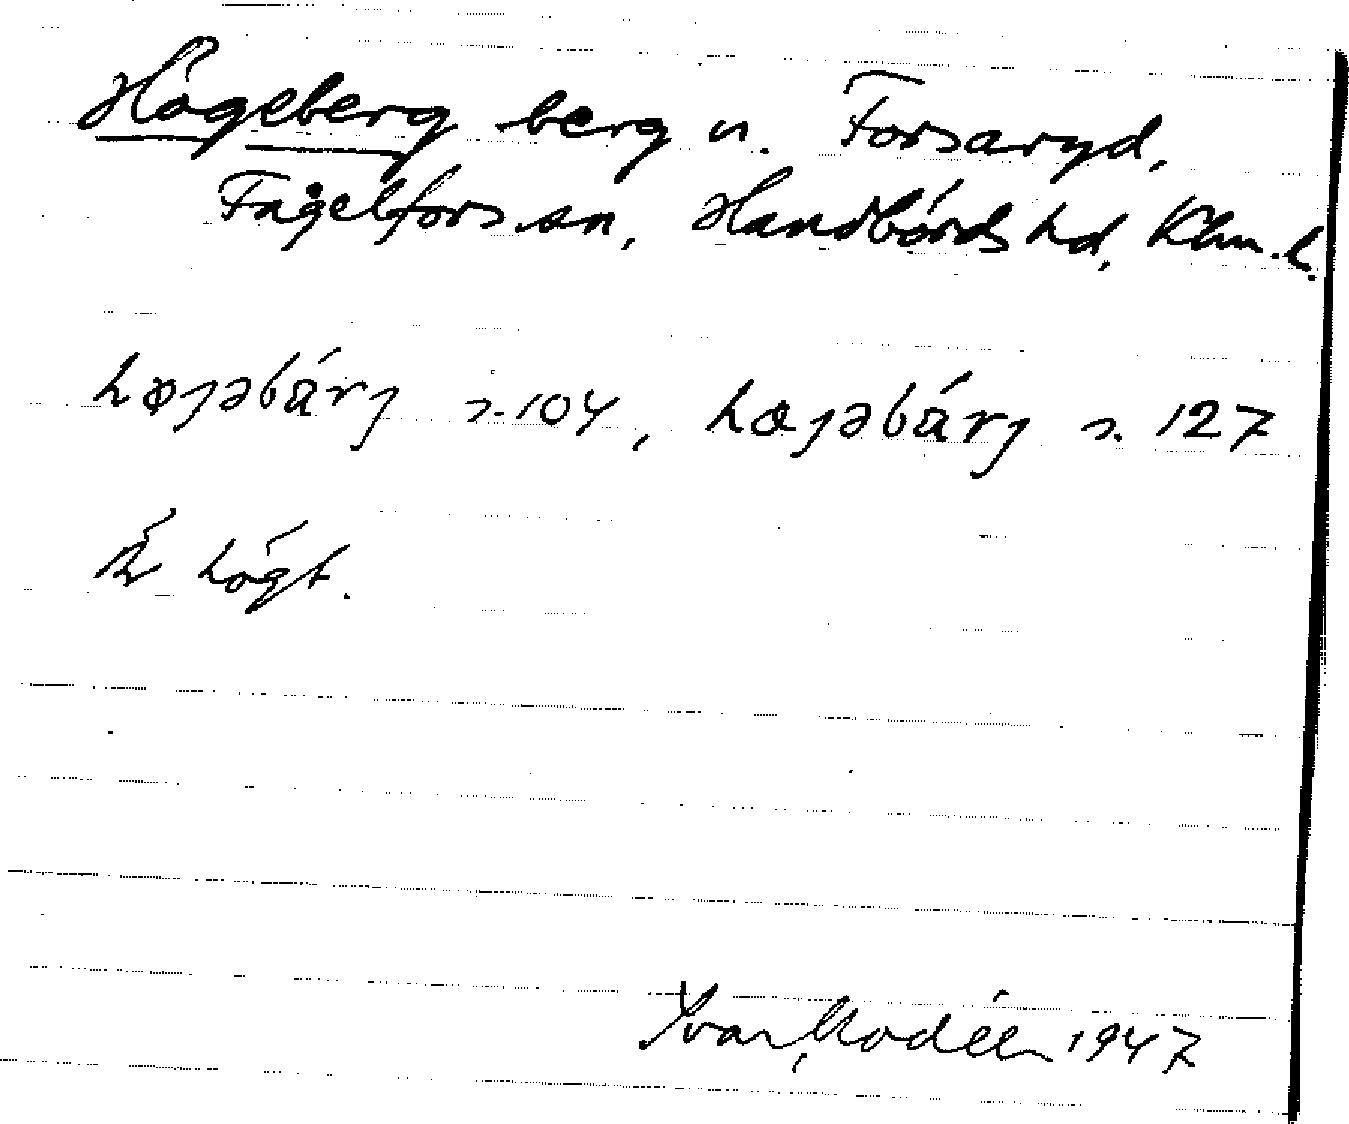 Högeberg berg n. Forsaryd,
Fågelfors sn, Handbörds hd, Klm. l.
høȷəbárȷ s. 104, hœȷəbárȷ s. 127
Är högt.
Ivar Modéer 1947